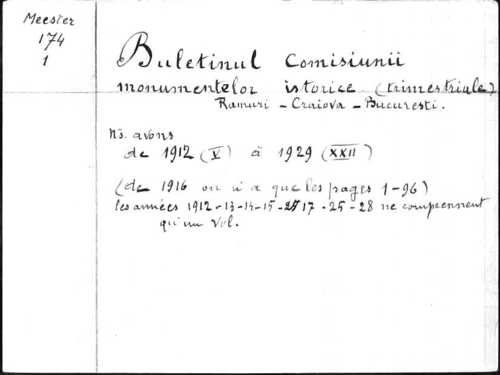 Meester
174
1
Buletinul Comisiunii
monumentelor istorice (trimestriale)
Ramuri - Craiova - Bucuresti.
Ns. avons
de 1912 (V) à 1929 (XXII)
(de 1916 on n'a que les pages 1-96)
les années 1912-13-14-15-17-25-28 ne comprennent
qu'un vol.